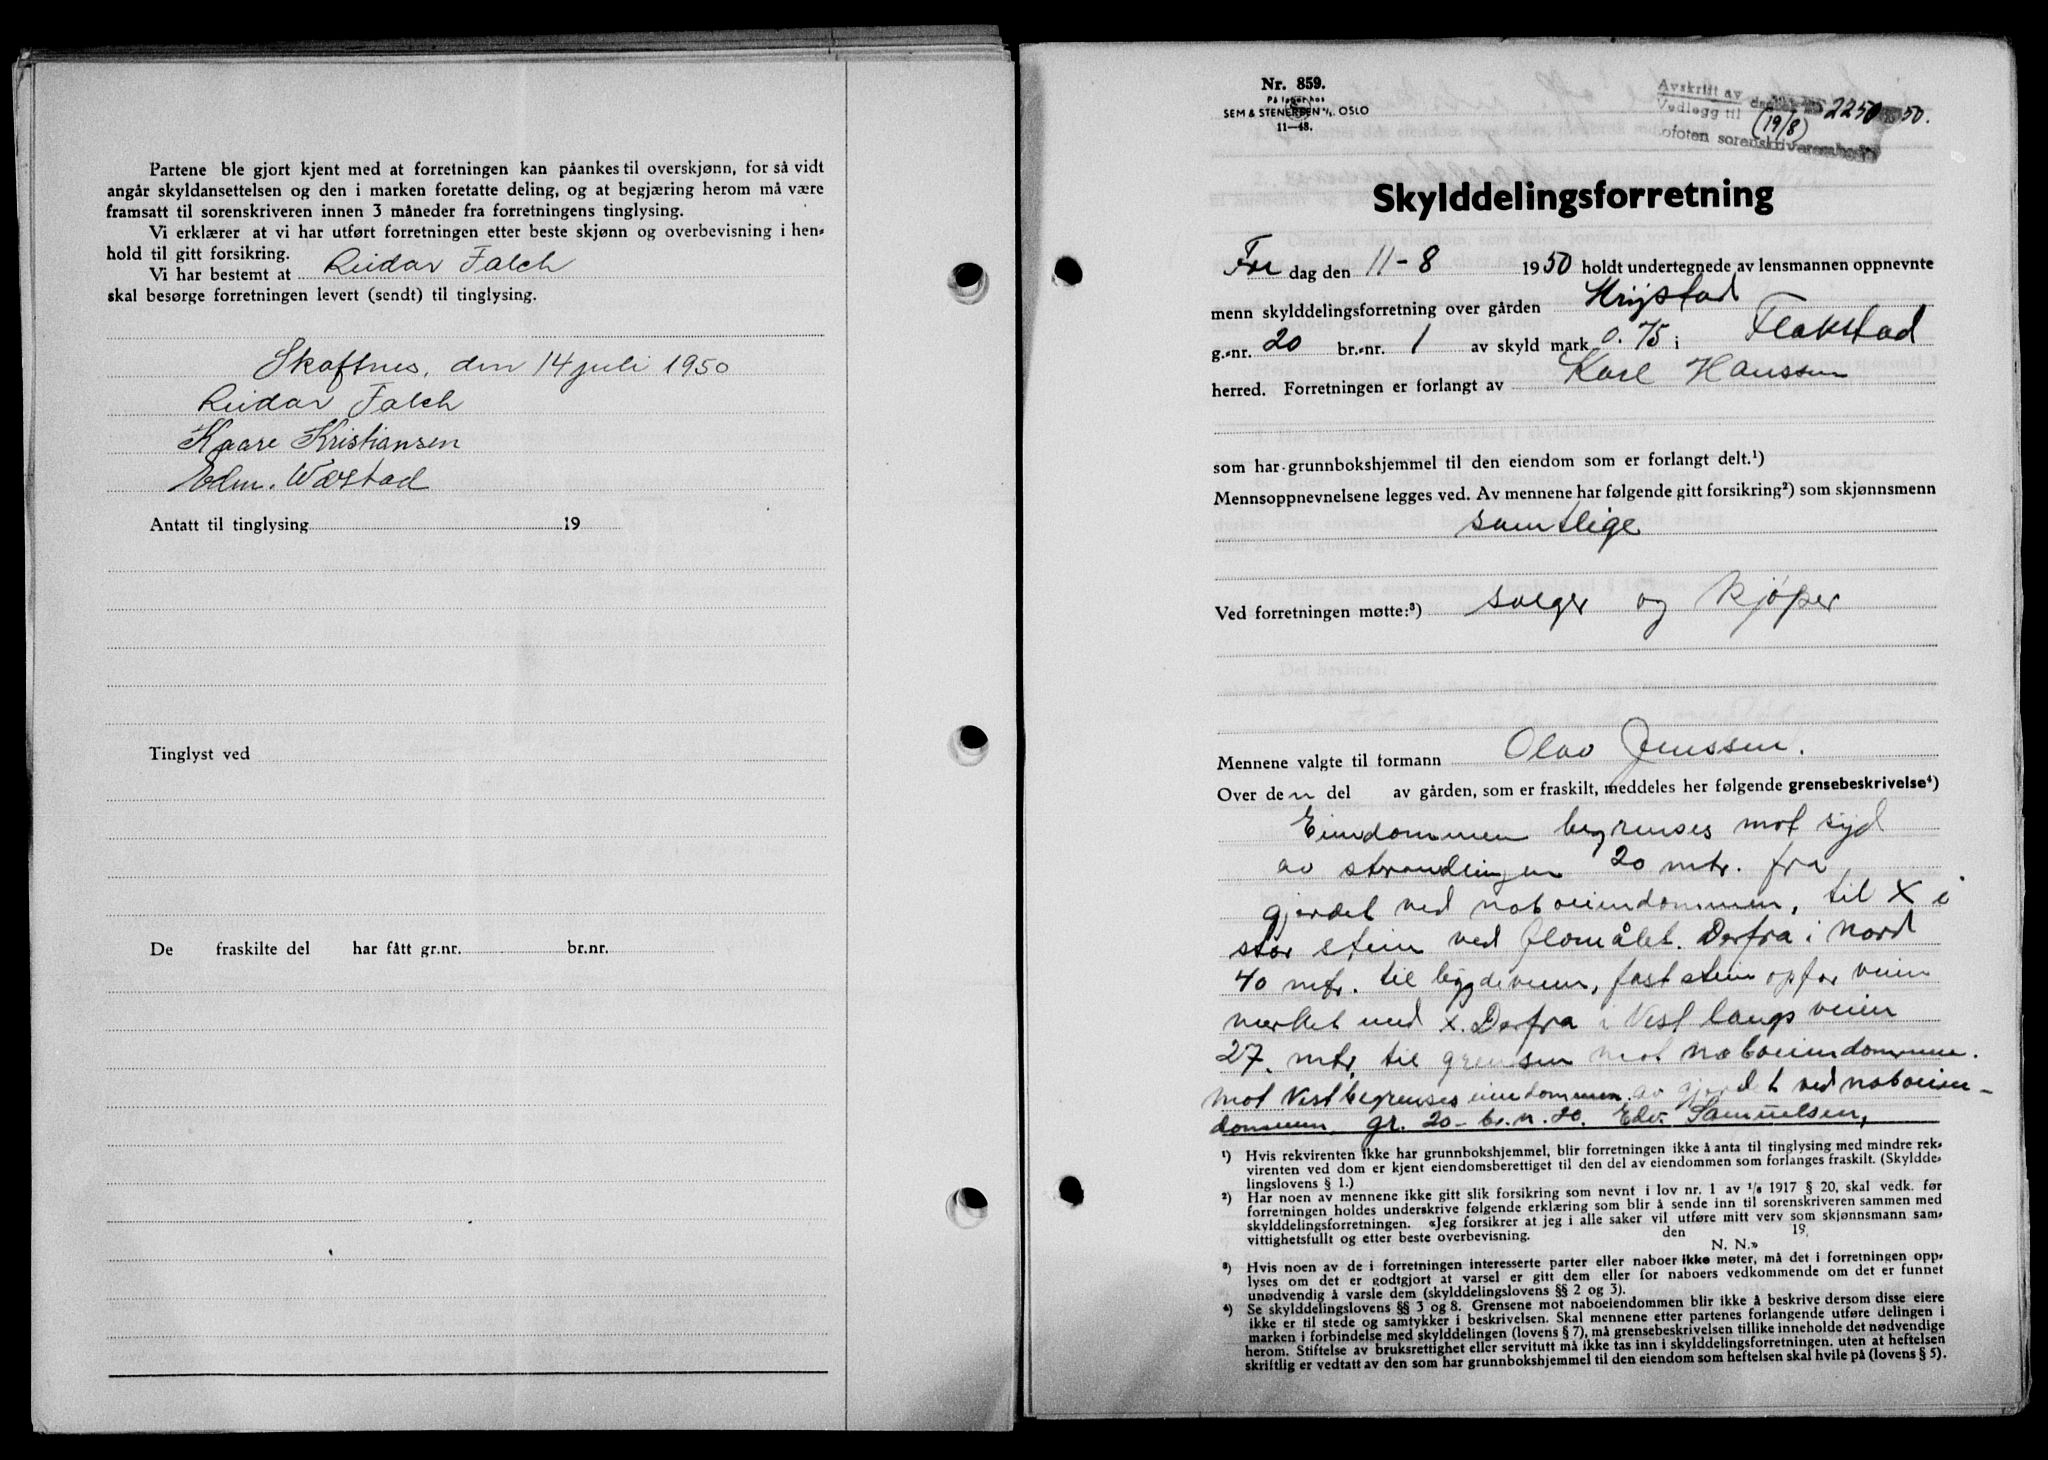 Partene ble gjort kjent med at forretningen kan påankes til overskjønn, for så vidt
angår skyldansettelsen og den i marken foretatte deling, og at begjæring herom må være
framsatt til sorenskriveren innen 3 måneder fra forretningens tinglysing.
Vi erklærer at vi har utført forretningen etter beste skjønn og overbevisning i hen-
hold til gitt forsikring.
Vi har bestemt at Reidar Falch
skal besørge forretningen levert (sendt) til tinglysing.
Skaftnes, den 14 juli 1950
Reidar Falch
Kaare Kristiansen
Edm. Wæstad
Antatt til tinglysing 19
Tinglyst ved
De fraskilte del har fått gr.nr. br.nr.
Nr. 859.
På lager hos
SEM & STENERSEN A/S. OSLO
11-48.
Avskrift av
Vedlegg til dagbok 2250 50.
(19/8)
ofoten sorenskriverembede
Skylddelingsforretning
Fre dag den 11-8 1950 holdt undertegnede av lensmannen oppnevnte
menn skylddelingsforretning over gården Krystad
g.-nr. 20 br.-nr. 1 av skyld mark 0.75 i Flakstad
herred. Forretningen er forlangt av Karl Hanssen
som har grunnbokshjemmel til den eiendom som er forlangt delt.¹)
Mennsoppnevnelsene legges ved. Av mennene har følgende gitt forsikring²) som skjønnsmenn
samtlige
Ved forretningen møtte:³) selger og kjøper
Mennene valgte til formann Olav Jenssen.
Over den del av gården, som er fraskilt, meddeles her følgende grensebeskrivelse⁴)
Eiendommen begrenses mot syd
av strandlinjen 20 mtr. fra
gjerdet ved naboeiendommen, til X i
stor stein ved flomålet. Derfra i nord
40 mtr. til bygdeveien, fast stein opfor veien
merket med x. Derfra i Vest langs veien
27. mtr. til grensen mot naboeiendommen.
mot Vest begrenses eiendommen av gjerdet ved naboeien-
dommen gr. 20 - br. n. 20. Edv. Samuelsen,
¹) Hvis rekvirenten ikke har grunnbokshjemmel, blir forretningen ikke å anta til tinglysing med mindre rek-
virenten ved dom er kjent eiendomsberettiget til den del av eiendommen som forlanges fraskilt. (Skyldde-
lingslovens § 1.)
²) Har noen av mennene ikke gitt slik forsikring som nevnt i lov nr. 1 av 1/6 1917 § 20, skal vedk. før
forretningen holdes underskrive følgende erklæring som blir å sende inn til sorenskriveren sammen med
skylddelingsforretningen. «Jeg forsikrer at jeg i alle saker vil utføre mitt verv som skjønnsmann sam-
vittighetsfullt og etter beste overbevisning. den 19.
N. N.»
³) Hvis noen av de i forretningen interesserte parter eller naboer ikke møter, må det i forretningen opp-
lyses om det er godtgjort at varsel er gitt dem eller for naboers vedkommende om det er funnet
unødvendig å varsle dem (skylddelingslovens §§ 2 og 3).
⁴) Se skylddelingslovens §§ 3 og 8. Grensene mot naboeiendommen blir ikke å beskrive dersom disse eiere
ikke er til stede og samtykker i beskrivelsen. Skal mennene etter partenes forlangende utføre delingen i
marken i forbindelse med skylddelingen (lovens § 7), må grensebeskrivelsen tillike inneholde det nødvendige
herom. Stiftelse av bruksrettighet eller servitutt må ikke tas inn i skylddelingsforretningen. uten at heftelsen
skriftlig er vedtatt av den som har grunnbokshjemmel til den eiendom som heftelsen skal hvile på (lovens § 5).